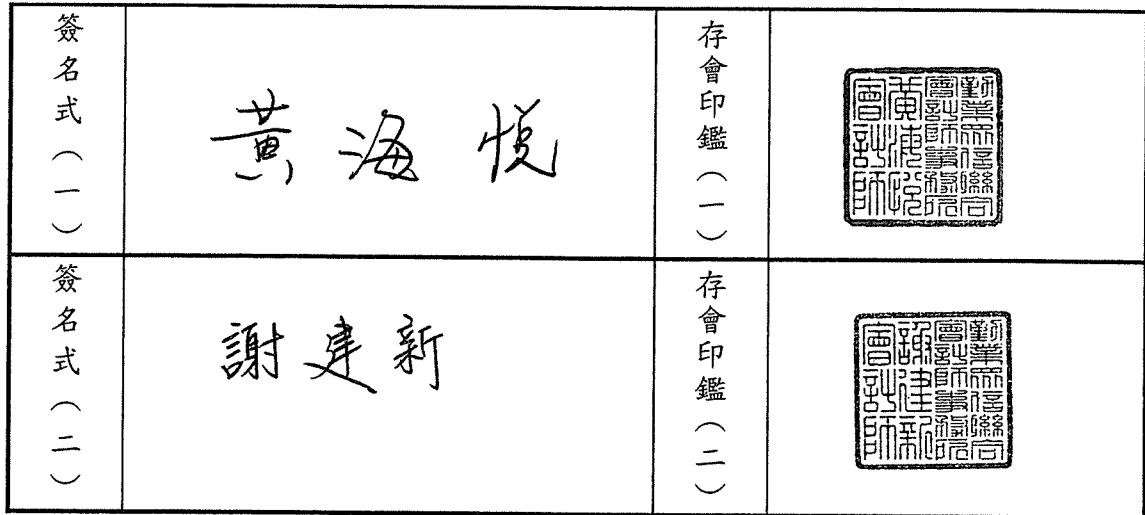 簽名式（一）
黃海悅
存會印鑑（一）
勤業眾信聯合
會計師事務所
黃海悅
會計師
簽名式（二）
謝建新
存會印鑑（二）
勤業眾信聯合
會計師事務所
謝建新
會計師